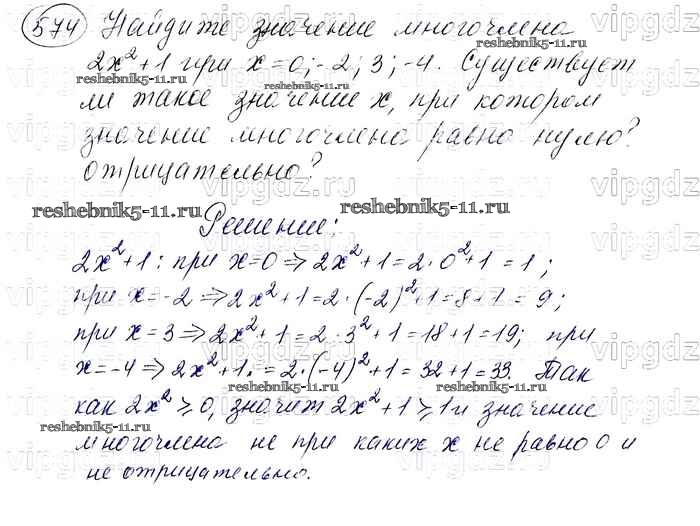 574 Найдите значение многочлена
2x²+1 при x=0;-2; 3; -4. Существует
ли такое значение x, при котором
значение многочлена равно нулю?
отрицательно?
Решение:
2x²+1: при x=0 ⇒ 2x²+1=2·0²+1=1;
при x=-2 ⇒ 2x²+1=2·(-2)²+1=8+1=9;
при x=3 ⇒ 2x²+1=2·3²+1=18+1=19; при
x=-4 ⇒ 2x²+1.=2·(-4)²+1=32+1=33. Так
как 2x²⩾0, значит 2x²+1⩾1 и значение
многочлена не при каких x не равно 0 и
не отрицательно.
vipgdz.ru
reshebnik5-11.ru